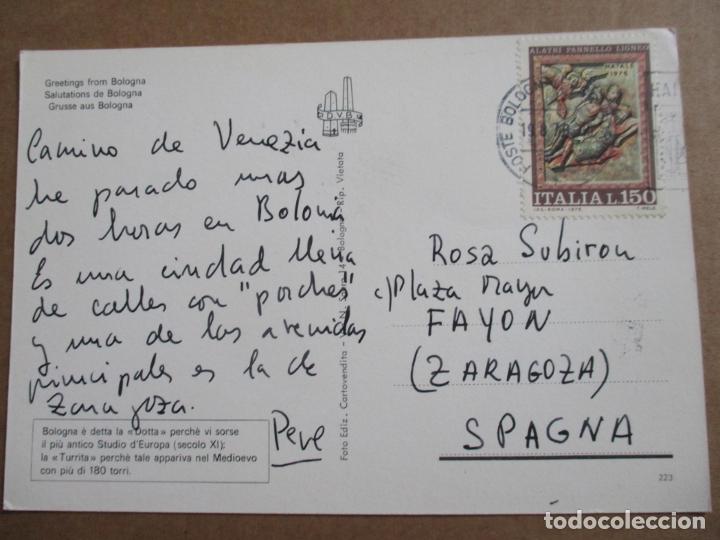 Greetings from Bologna
Salutations de Bologna
Grusse aus Bologna
Camino de Venezia
he parado unas
dos horas en Bolonia
Es una ciudad llena
de calles con "porches"
y una de las avenidas
principales es la de
Zaragoza.
Pepe
Bologna è detta la «Dotta» perchè vi sorse
il più antico Studio d'Europa (secolo XI);
la «Turrita» perchè tale appariva nel Medioevo
con più di 180 torri.
D.V.B.
Foto Ediz. Cartovendita
Bologna Rip. Vietata
ALATRI PANNELLO LIGNEO
NATALE
1975
ITALIA L.150
I.P.S.-ROMA-1975
T. MELE
POSTE BOLOGNA
Rosa Subirou
c/ Plaza Mayor
FAYON
(ZARAGOZA)
SPAGNA
223
todocoleccion
todocoleccion.net